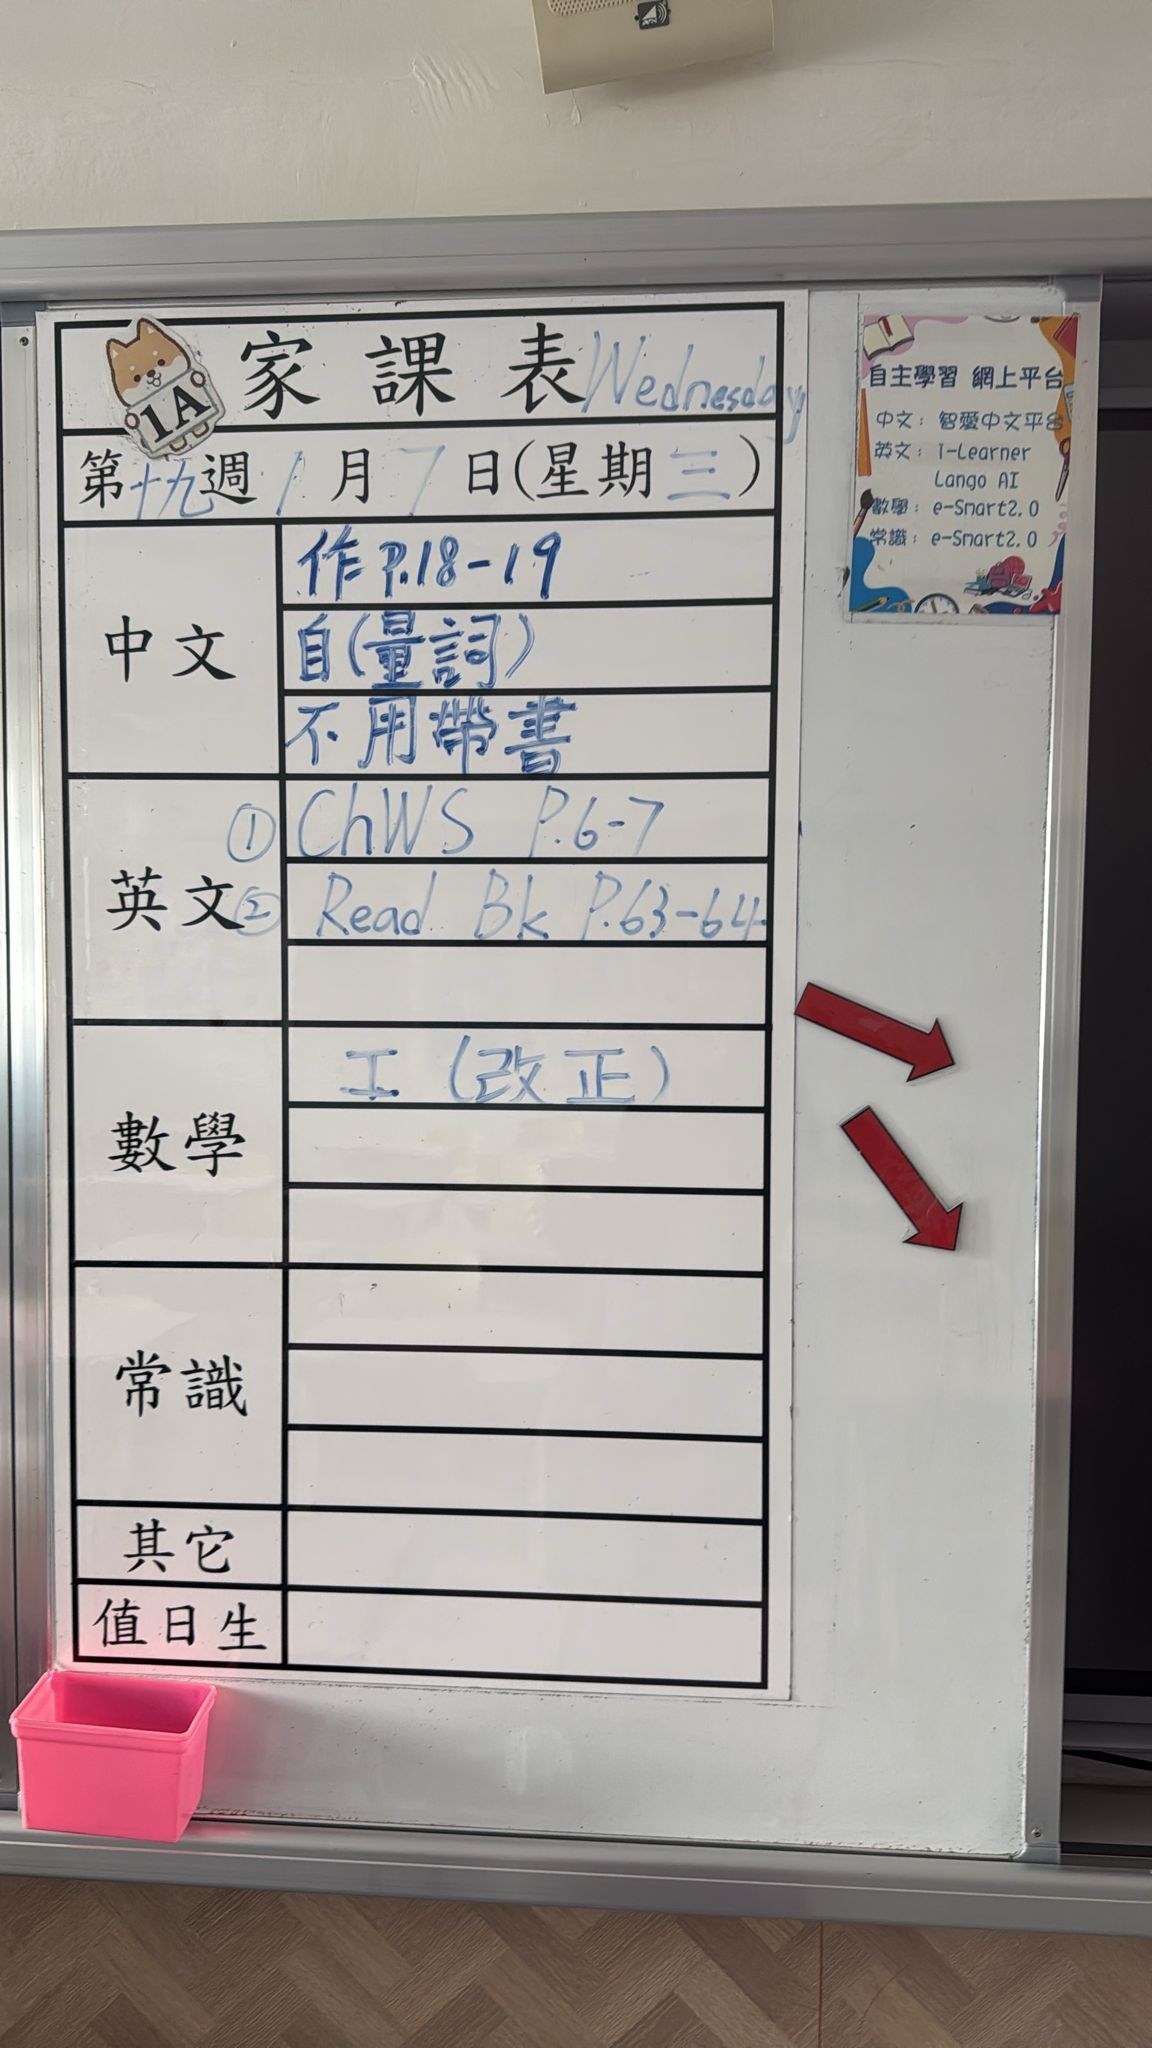 家課表 Wednesday
1A
第十九週 1月7日(星期三)
中文
作 P.18-19
自(量詞)
不用帶書
英文
① ChWS P.6-7
② Read Bk P.63-64
數學
工 (改正)
常識
其它
值日生
自主學習 網上平台
中文: 智愛中文平台
英文: I-Learner
Lango AI
數學: e-Smart2.0
常識: e-Smart2.0